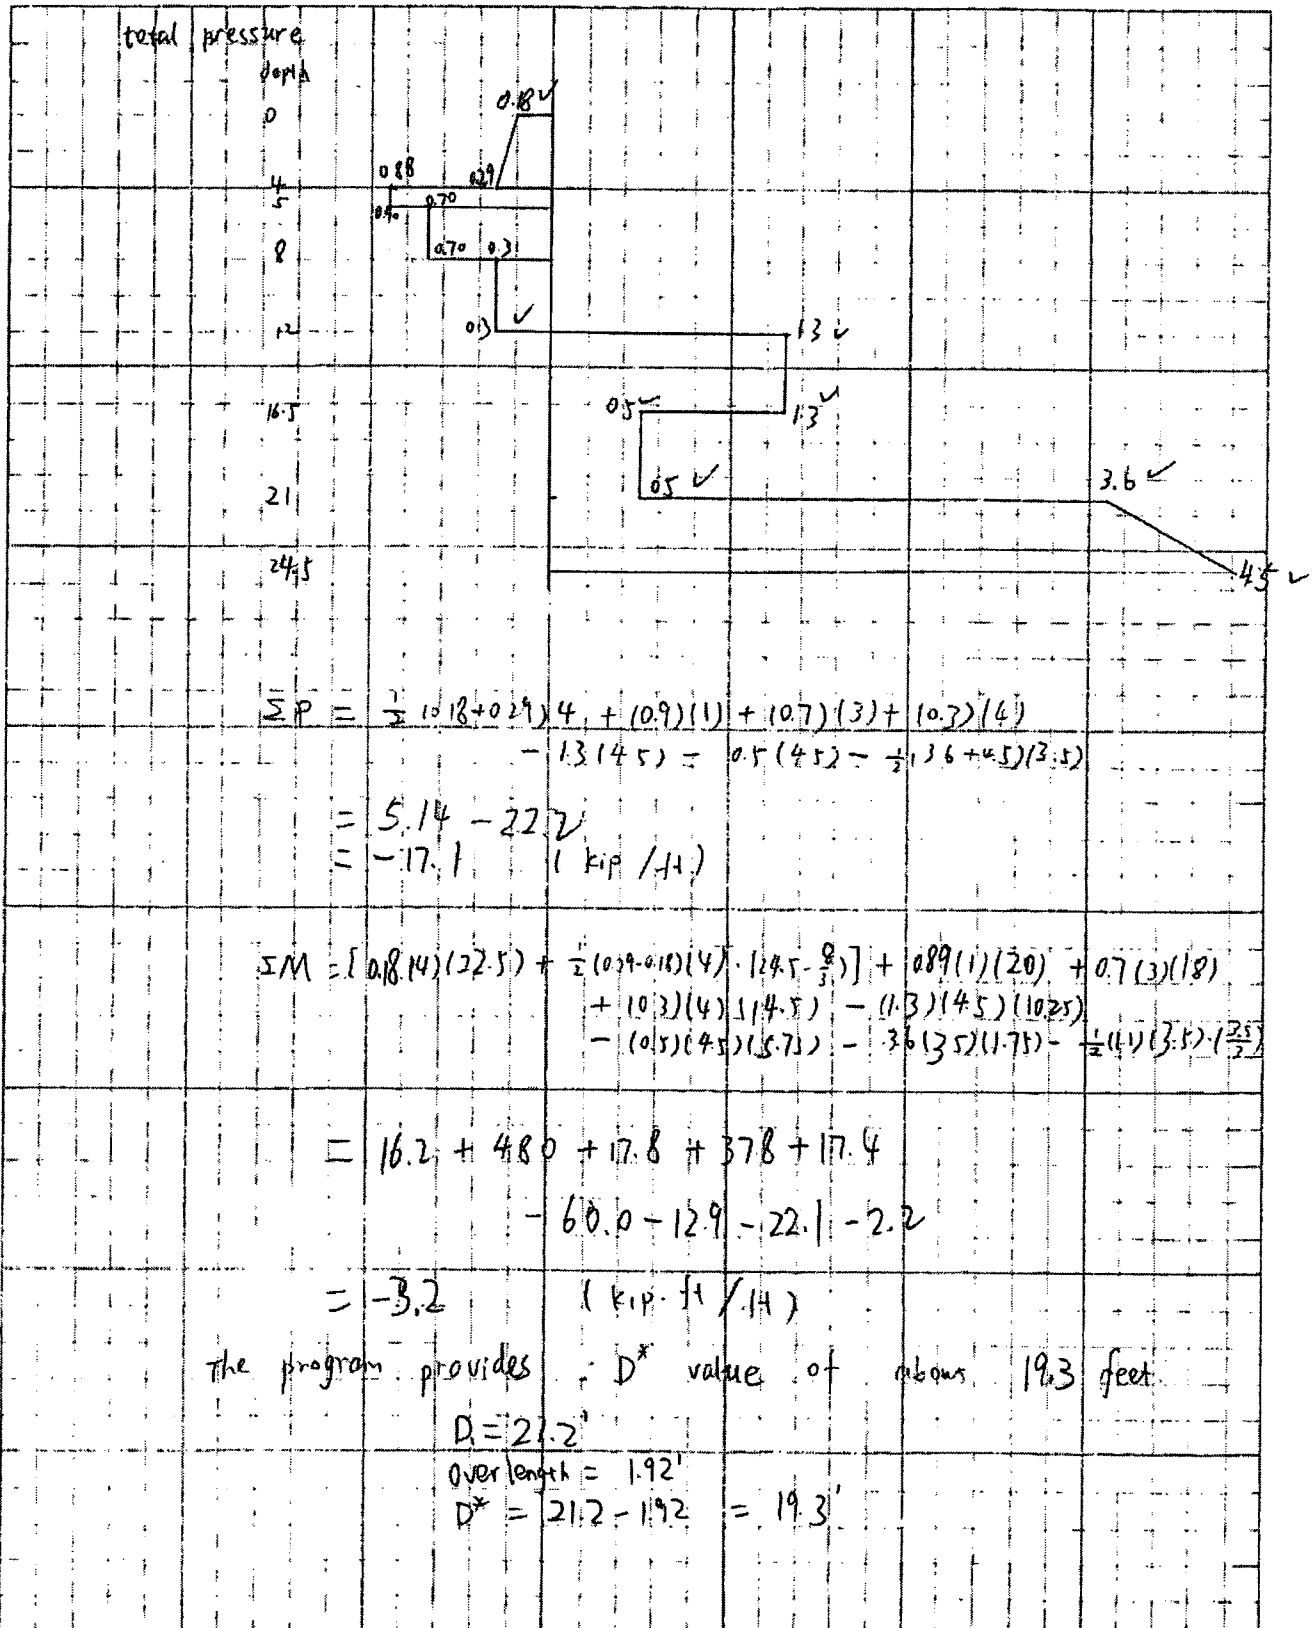 total pressure
depth
0
0.18 ✓
4
0.88
0.29
5
0.90
0.70
8
0.70 0.3
12
0.3 ✓
1.3 ✓
16.5
0.5 ✓
1.3 ✓
21
0.5 ✓
3.6 ✓
24.5
4.5 ✓
ΣP = 1/2 (0.18+0.29)4 + (0.9)(1) + (0.7)(3) + (0.3)(4)
- 1.3(4.5) - 0.5(4.5) - 1/2(3.6+4.5)(3.5)
= 5.14 - 22.2
= -17.1 (kip/ft)
ΣM = [0.18(4)(22.5) + 1/2(0.29-0.18)(4)·(24.5-8/3)] + 0.89(1)(20) + 0.7(3)(18)
+ (0.3)(4)(14.5) - (1.3)(4.5)(10.25)
- (0.5)(4.5)(5.75) - 3.6(3.5)(1.75) - 1/2(1.1)(3.5)·(3.5/3)
= 16.2 + 4.80 + 17.8 + 37.8 + 17.4
- 60.0 - 12.9 - 22.1 - 2.2
= -3.2 (kip·ft/ft)
The program provides D* value of about 19.3 feet
D = 21.2'
over length = 1.92'
D* = 21.2 - 1.92 = 19.3'